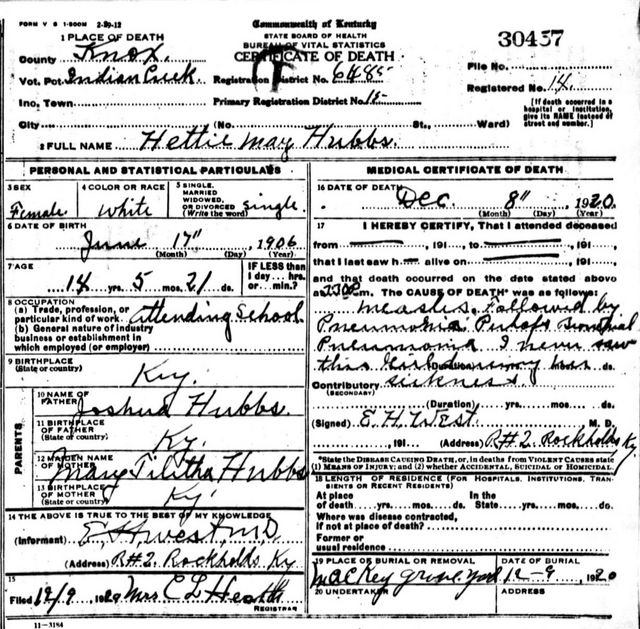 FORM V S 1-500M 2-29-12
Commonwealth of Kentucky
STATE BOARD OF HEALTH
BUREAU OF VITAL STATISTICS
CERTIFICATE OF DEATH
30457
1 PLACE OF DEATH
County Knox
Vot. Pct. Indian Creek
Registration District No. 6485
File No.
Inc. Town
Primary Registration District No.
Registered No. 14
[If death occurred in a hospital or institution, give its NAME instead of street and number.]
City (No. St., Ward)
2 FULL NAME Hettie May Hubbs.
PERSONAL AND STATISTICAL PARTICULARS
3 SEX
Female.
4 COLOR OR RACE
White
5 SINGLE, MARRIED WIDOWED, OR DIVORCED (Write the word) Single.
6 DATE OF BIRTH
June 17" 1906
(Month) (Day) (Year)
7 AGE
14 yrs. 5 mos. 21 ds.
IF LESS than 1 day... hrs. or... min.?
8 OCCUPATION
(a) Trade, profession, or particular kind of work. Attending School
(b) General nature of industry business or establishment in which employed (or employer)
9 BIRTHPLACE
(State or country)
Ky.
PARENTS
10 NAME OF FATHER
Joshua Hubbs.
11 BIRTHPLACE OF FATHER
(State or country)
Ky.
12 MAIDEN NAME OF MOTHER
Mary Tilitha Hubbs
13 BIRTHPLACE OF MOTHER
(State or country)
Ky.
14 THE ABOVE IS TRUE TO THE BEST OF MY KNOWLEDGE
(Informant) E H West M.D.
(Address) R#2. Rockholds, Ky
15
Filed 12/9 1920 Mrs C L Heath
REGISTRAR
11-3184
MEDICAL CERTIFICATE OF DEATH
16 DATE OF DEATH
Dec. 8" 1920.
(Month) (Day) (Year)
17 I HEREBY CERTIFY, That I attended deceased
from , 191 , to , 191 ,
that I last saw h alive on , 191 ,
and that death occurred on the date stated above
at 230P m. The CAUSE OF DEATH* was as follows:
Measles. Followed by
Pneumonia. Perhaps Bronchial
Pneumonia. I never saw
this Girl during her
(Duration) yrs. mos. ds.
Contributory sickness.
(SECONDARY)
(Duration) yrs. mos. ds.
(Signed) E. H. West M. D.
, 191 (Address) R#2. Rockholds Ky
*State the DISEASE CAUSING DEATH, or, in deaths from VIOLENT CAUSES state (1) MEANS OF INJURY; and (2) whether ACCIDENTAL, SUICIDAL or HOMICIDAL.
18 LENGTH OF RESIDENCE (FOR HOSPITALS, INSTITUTIONS, TRANSIENTS OR RECENT RESIDENTS)
At place of death yrs. mos. ds.
In the State yrs. mos. ds.
Where was disease contracted, if not at place of death?
Former or usual residence
19 PLACE OF BURIAL OR REMOVAL
Mackey grave yard
DATE OF BURIAL
12-9 1920
20 UNDERTAKER
ADDRESS